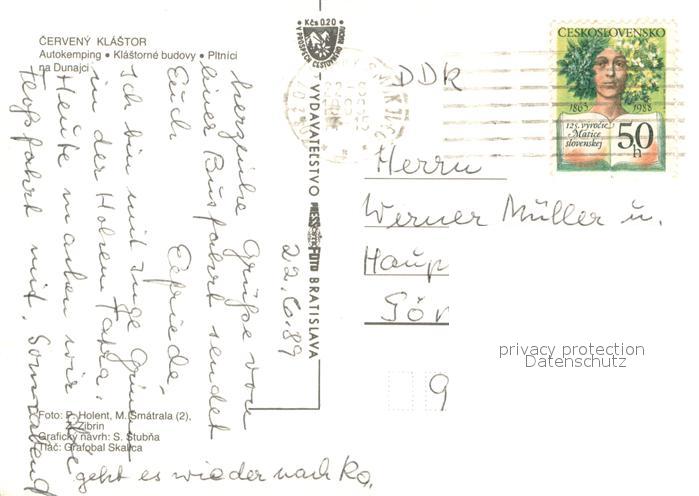 ČERVENÝ KLÁŠTOR
Autokemping • Kláštorné budovy • Pltníci
na Dunajci
Kčs 0.20
V PROSPECH CESTOVNÉHO RUCHU
VYDAVATEĽSTVO
PRESSFOTO BRATISLAVA
22.6.89
herzliche Grüße von
einer Busfahrt sendet
Euch
Elfriede.
Ich bin mit Inge
in der Hohen Tatra.
Heute machen wir die
Floßfahrt mit, Sonnabend
geht es wieder nach Ka.
DDR
Herrn
Werner Müller u.
Haup
Gör
9
ČESKOSLOVENSKO
1863 1988
125. výročie
Matice
slovenskej
50
h
privacy protection
Datenschutz
Foto: P. Holent, M. Smatrala (2),
Z. Zibrin
Grafický návrh: S. Stubňa
Tlač: Grafobal Skalica